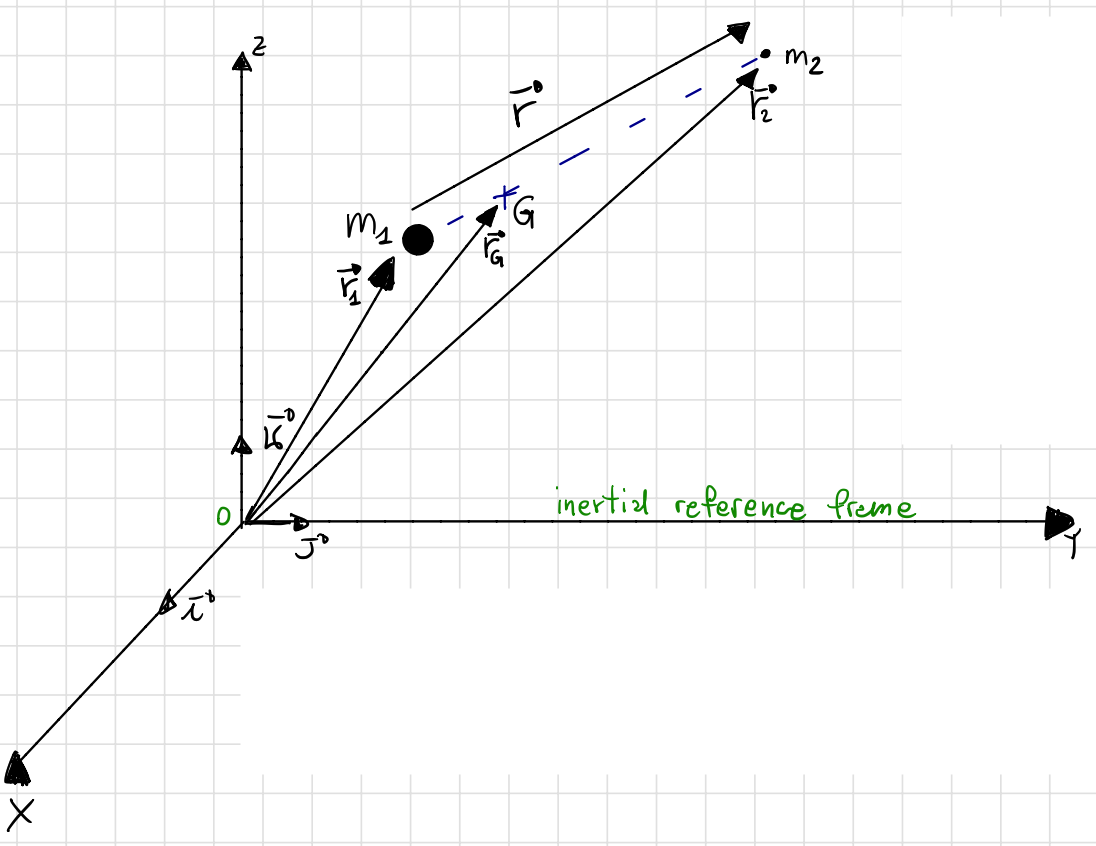 z
r⃗
m₂
r⃗₂
m₁
G
r⃗_G
r⃗₁
k⃗
O
inertial reference frame
J⃗
Y
i⃗
X